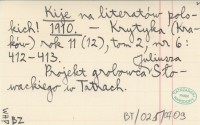 Kije na literatów pols-
kich! 1910. — Krytyka (Kra-
ków) rok 11 (12), tom 2, nr 6:
412-413.
Juliusza
Projekt grobowca Sło-
wackiego w Tatrach.
WHP
BZ
BT/